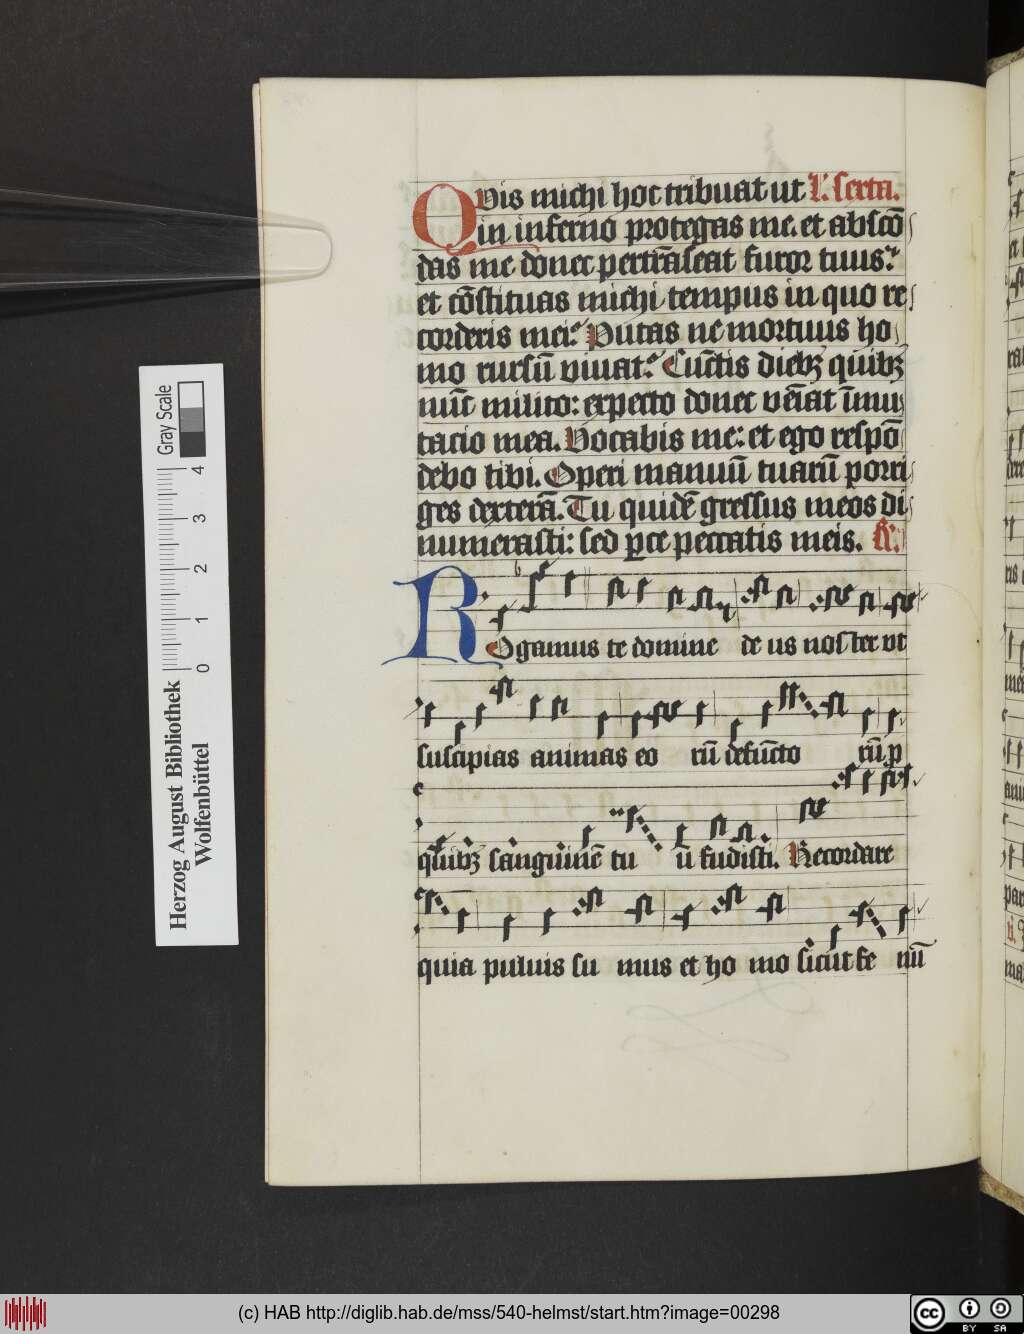 Quis michi hoc tribuat ut L. serta.
in inferno protegas me. et abscō
das me donec pertrāseat furor tuus?
et cōstituas michi tempus in quo re
corderis mei? Putas ne mortuus ho
mo rursū viuat? Cūctis diebꝫ quibꝫ
nūc milito: expecto donec vēiat īmu
tacio mea. Vocabis me: et ego respō
debo tibi. Operi manuū tuarū porri
ges dexterā. Tu quidē gressus meos di
numerasti: sed ꝑce peccatis meis. R.
Rogamus te domine de us noster vt
suscipias animas eo rū defūcto rū ꝓ
quibꝫ sanguinē tu ū fudisti. Recordare
quia puluis su mus et ho mo sicut fe nū
Gray Scale
0 1 2 3 4
Herzog August Bibliothek
Wolfenbüttel
(c) HAB http://diglib.hab.de/mss/540-helmst/start.htm?image=00298
cc BY SA